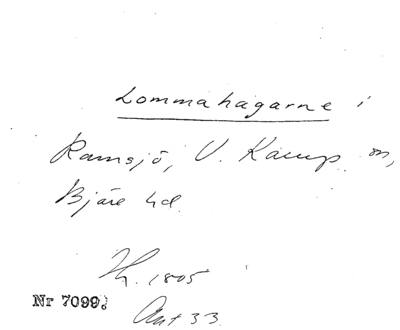 Lommahagarne i
Ramsjö, V. Karup sn,
Bjäre hd.
1805
Nr 7099.
Ant 33